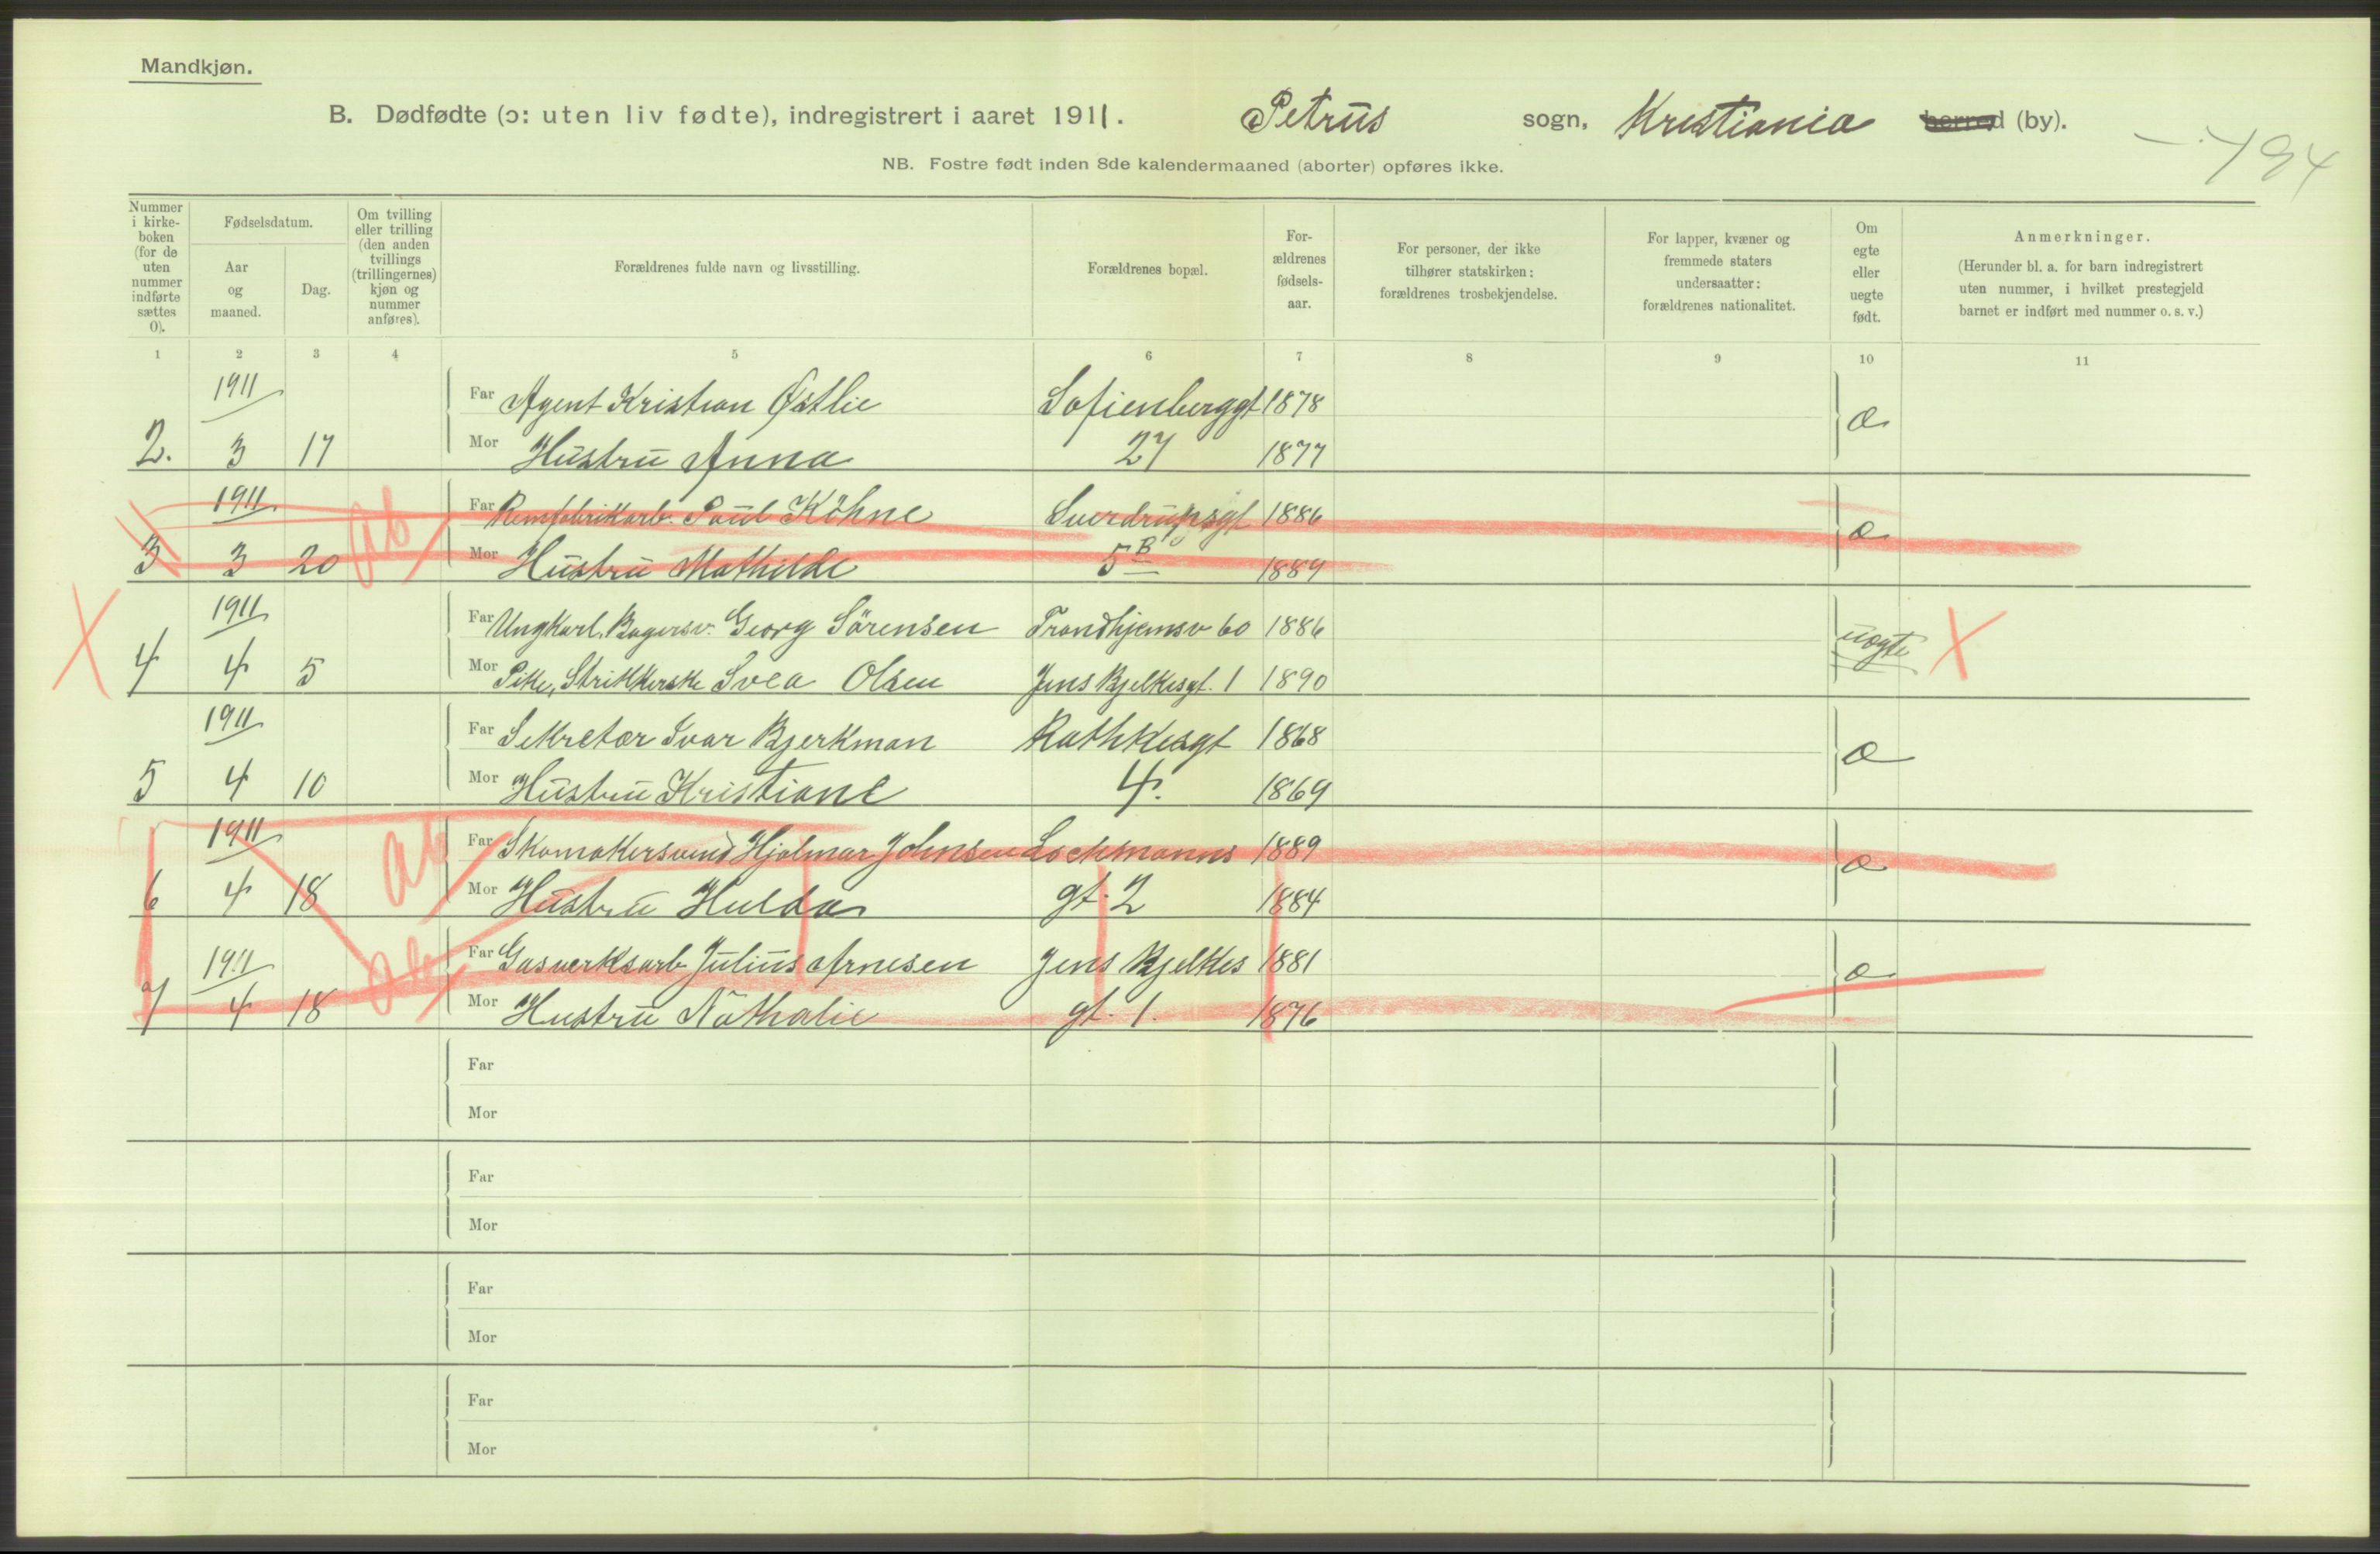 Mandkjøn.
B. Dødfødte (ɔ: uten liv fødte), indregistrert i aaret 1911. Petrus sogn, Kristiania herred (by).
494
NB. Fostre født inden 8de kalendermaaned (aborter) opføres ikke.
Nummer i kirke- boken (for de uten nummer indførte sættes 0).
Fødselsdatum.
Aar og maaned.
Dag.
Om tvilling eller trilling (den anden tvillings (trillingernes) kjøn og nummer anføres).
Forældrenes fulde navn og livsstilling.
Forældrenes bopæl.
For- ældrenes fødsels- aar.
For personer, der ikke tilhører statskirken: forældrenes trosbekjendelse.
For lapper, kvæner og fremmede staters undersaatter: forældrenes nationalitet.
Om egte eller uegte født.
Anmerkninger.
(Herunder bl. a. for barn indregistrert uten nummer, i hvilket prestegjeld barnet er indført med nummer o. s. v.)
1 2 3 4 5 6 7 8 9 10 11
1911 Far Agent Kristian Østlie Sofienberggt 1878 æ
2. 3 17 Mor Hustru Anna 27 1877
1911 ab Far Remfabrikarb. Paul Köhne Sverdrupsgt 1886 æ
3 3 20 Mor Hustru Mathilde 5B 1889
X 1911 Far Ungkarl, Bagersv. Georg Sörensen Trondhjemsv 60 1886 uægte X
4 4 5 Mor Pike, Strikkerske Svea Olsen Jens Bjelkesgt. 1 1890
1911 Far Sekretær Ivar Bjerkman Rathkesgt 1868 æ
5 4 10 Mor Hustru Kristiane 4. 1869
1911 ab Far Skomakersvend Hjalmar Johnsen Lochmanns 1889 æ
6 4 18 Mor Hustru Hulda gt. 2 1884
1911 ab Far Gasverksarb Julius Arnesen Jens Bjelkes 1881 æ
7 4 18 Mor Hustru Nathalie gt. 1. 1876
Far
Mor
Far
Mor
Far
Mor
Far
Mor